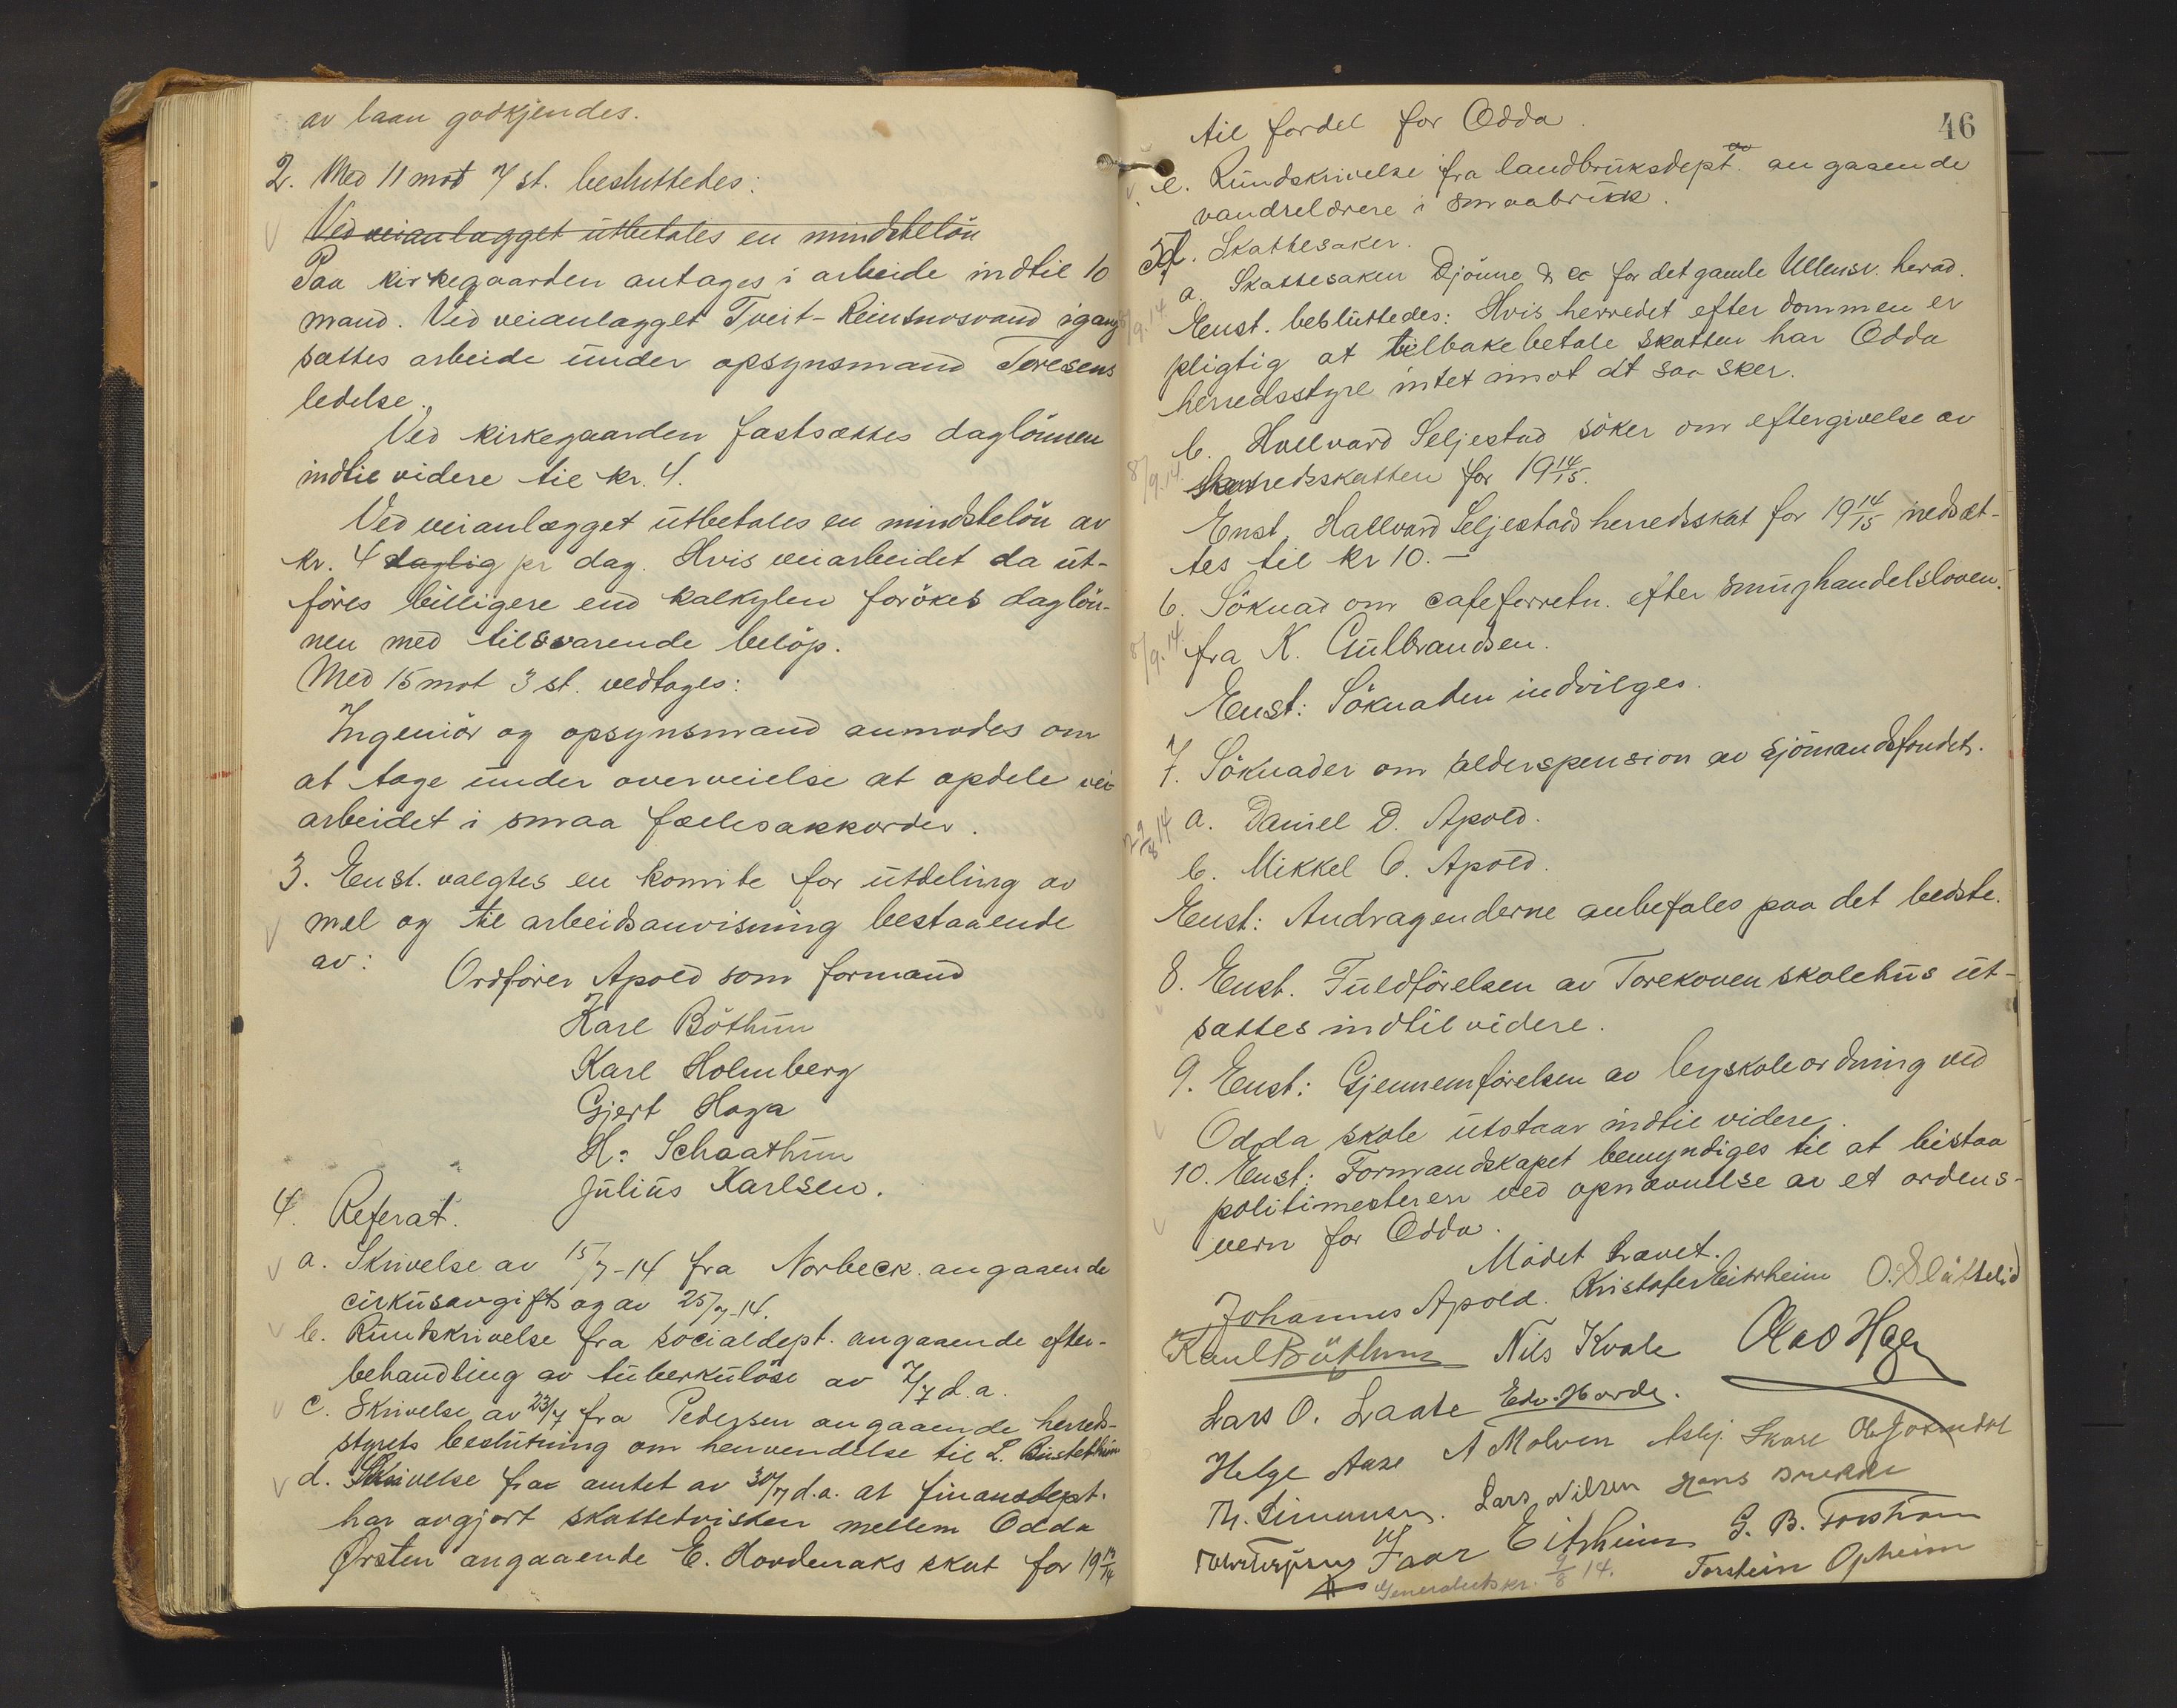 av laan godkjendes.
2. Med 11 mot 7 st. besluttedes:
Ved veianlægget utbetales en mindstelön
Paa kirkegaarden antages i arbeide indtil 10
mand. Ved veianlægget Tveit-Reinsnosvand igang
sættes arbeide under opsynsmand Toresens
ledelse.
Ved kirkegaarden fastsættes daglönnen
indtil videre til kr. 4.
Ved veianlægget utbetales en mindstelön av
kr. 4 daglig pr dag. Hvis veiarbeidet da ut-
föres billigere end kalkylen forökes daglön-
nen med tilsvarende belöp.
Med 15 mot 3 st. vedtages:
Ingeniör og opsynsmand anmodes om
at tage under overveielse at opdele vei-
arbeidet i smaa fællesakkorder.
3. Enst. valgtes en komite for utdeling av
mel og til arbeidsanvisning bestaaende
av:
Ordförer Apold som formand
Karl Böthun
Karl Holmberg
Gjert Haga
H. Schaathun
Julius Karlsen.
4. Referat.
a. Skrivelse av 15/7-14 fra Norbeck angaaende
cirkusavgift og av 25/7-14.
b. Rundskrivelse fra socialdept. angaaende efter-
behandling av tuberkulöse av 7/7 d.a.
c. Skrivelse av 23/7 fra Pedersen angaaende herreds-
styrets beslutning om henvendelse til L.
d. Skrivelse fra amtet av 30/7 d.a. at finansdept.
har avgjort skattetvisten mellem Odda
Ørsten angaaende E. Hovdenaks skat for 19 13/14
46
til fordel for Odda.
e. Rundskrivelse fra landbruksdept. angaaende
vandrelærere i smaabruk.
5. Skattesaker.
a. Skattesaken Djönne & co for det gamle Ullensv. herad.
Enst. besluttedes: Hvis herredet efter dommen er
8/9.14
pligtig at tilbakebetale skatten har Odda
herredsstyre intet imot at saa sker.
b. Hallvard Seljestad söker om eftergivelse av
8/9.14.
herredsskatten for 19 14/15.
Enst. Hallvard Seljestad herredsskat for 19 14/15 nedsæt-
tes til kr 10.-
6. Söknad om cafeforretn. efter smughandelsloven
8/9.14.
fra K. Gulbrandsen.
Enst: Söknaden indvilges.
7. Söknader om alderspension av sjömandsfondet.
29/8 14
a. Daniel D. Apold.
b. Mikkel O. Apold.
Enst: Andragenderne anbefales paa det bedste.
8. Enst. Fuldförelsen av Torekoven skolehus ut-
sættes indtil videre.
9. Enst: Gjennemförelsen av byskoleordning ved
Odda skole utstaar indtil videre.
10. Enst: Formandskapet bemyndiges til at bistaa
politimesteren ved opnævnelse av et ordens-
vern for Odda.
Mödet hævet.
Johannes Apold. Kristofer Eitrheim O. Slåttelid
Karl Böthun Nils Kvale Olav Haga
Lars O. Laate Edv. Horde.
Helge Aase A Molven Asbj. Skare
Th. Simonsen. Lars Nilsen Hans
Ivar Eitrheim G. B. Torström
Generalutskr. 9/8 14. Torstein Opheim